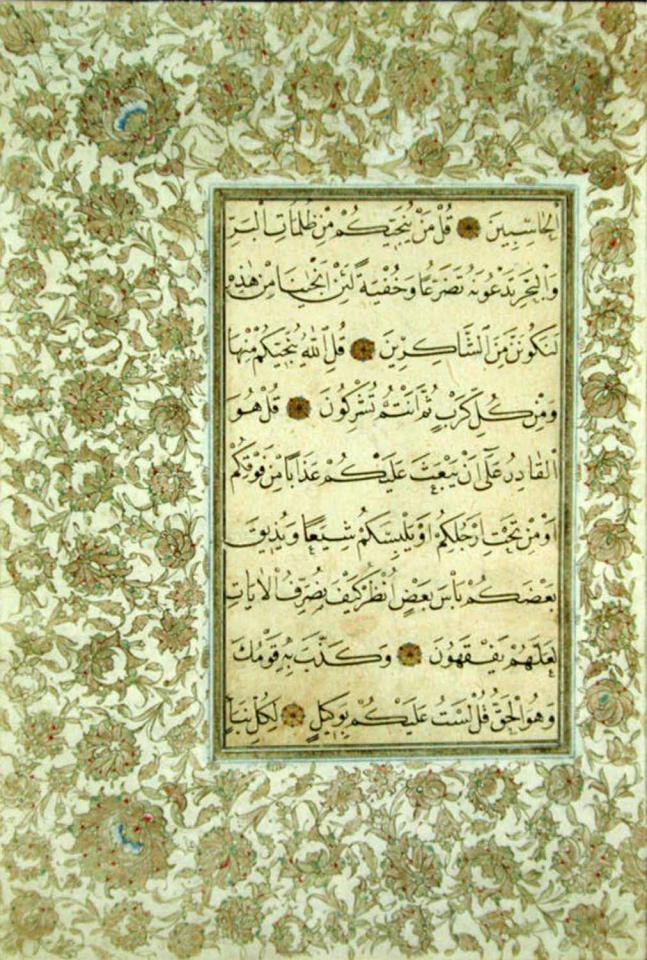 الحاسبين قُلْ مَنْ يُنَجِّيكُمْ مِنْ ظُلُمَاتِ الْبَرِّ
وَالْبَحْرِ تَدْعُونَهُ تَضَرُّعًا وَخُفْيَةً لَئِنْ اَنْجٰينَا مِنْ هٰذِهِ
لَنَكُونَنَّ مِنَ الشَّاكِرِينَ قُلِ اللّٰهُ يُنَجِّيكُمْ مِنْهَا
وَمِنْ كُلِّ كَرْبٍ ثُمَّ اَنْتُمْ تُشْرِكُونَ قُلْ هُوَ
الْقَادِرُ عَلٰٓى اَنْ يَبْعَثَ عَلَيْكُمْ عَذَابًا مِنْ فَوْقِكُمْ
اَوْ مِنْ تَحْتِ اَرْجُلِكُمْ اَوْ يَلْبِسَكُمْ شِيَعًا وَيُذِيقَ
بَعْضَكُمْ بَاْسَ بَعْضٍ اُنْظُرْ كَيْفَ نُصَرِّفُ الْاٰيَاتِ
لَعَلَّهُمْ يَفْقَهُونَ وَكَذَّبَ بِهِ قَوْمُكَ
وَهُوَ الْحَقُّ قُلْ لَسْتُ عَلَيْكُمْ بِوَكِيلٍ لِكُلِّ نَبَاٍ